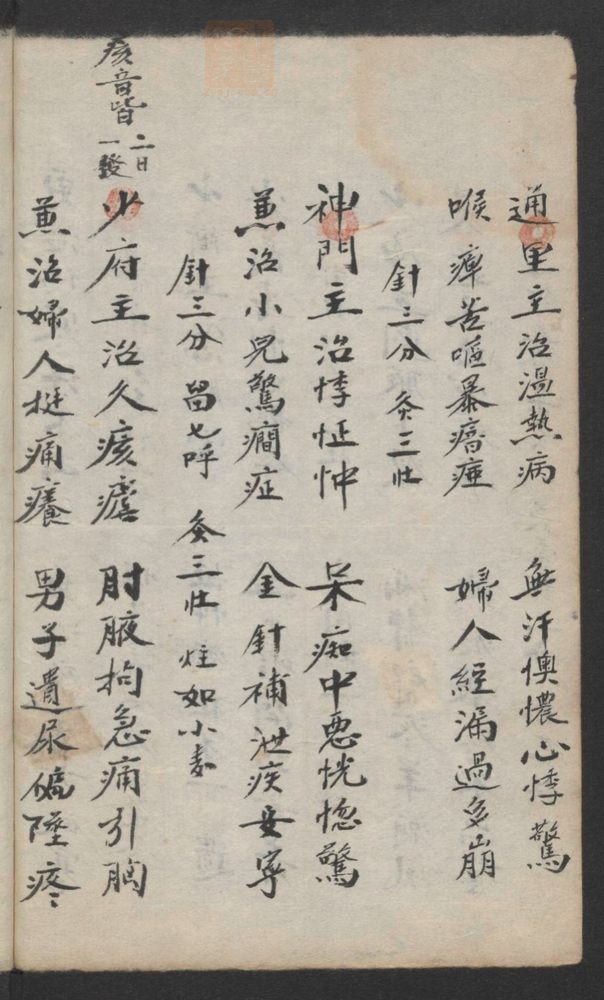 通里主治溫熱病 無汗懊憹心悸驚
喉痺苦嘔暴瘖瘂 婦人經漏過多崩
針三分 灸三壯
神門主治悸怔忡 呆痴中惡恍惚驚
兼治小兒驚癇症 金針補泄疾安寧
針三分 畄七呼 灸三壯 炷如小麥
少府主治久痎瘧 肘腋拘急痛引胸
痎音皆 二日一發
兼治婦人挺痛癢 男子遺尿偏墜疼